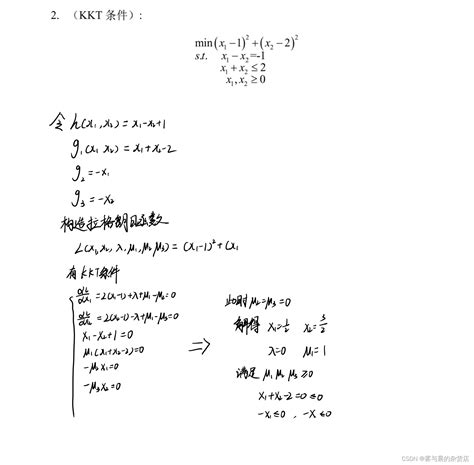 2. （KKT 条件）:
min(x₁−1)²+(x₂−2)²
s.t. x₁−x₂=-1
x₁+x₂≤2
x₁,x₂≥0
令 h(x₁,x₂)=x₁-x₂+1
g₁(x₁ x₂)=x₁+x₂-2
g₂=-x₁
g₃=-x₂
构造拉格朗日函数
L(x₁,x₂,λ,μ₁,μ₂,μ₃)=(x₁-1)²+(x₁
有KKT条件
dL/dx₁=2(x₁-1)+λ+μ₁-μ₂=0
dL/dx₂=2(x₂-1)-λ+μ₁-μ₃=0
x₁-x₂+1=0
μ₁(x₁+x₂-2)=0
-μ₂x₁=0
-μ₃x₂=0
=>
此时 μ₂=μ₃=0
解得 x₁=½ x₂=3/2
λ=0 μ₁=1
满足 μ₁ μ₂ μ₃≥0
x₁+x₂-2=0≤0
-x₁≤0 , -x≤0
CSDN @雾与雾的杂货店